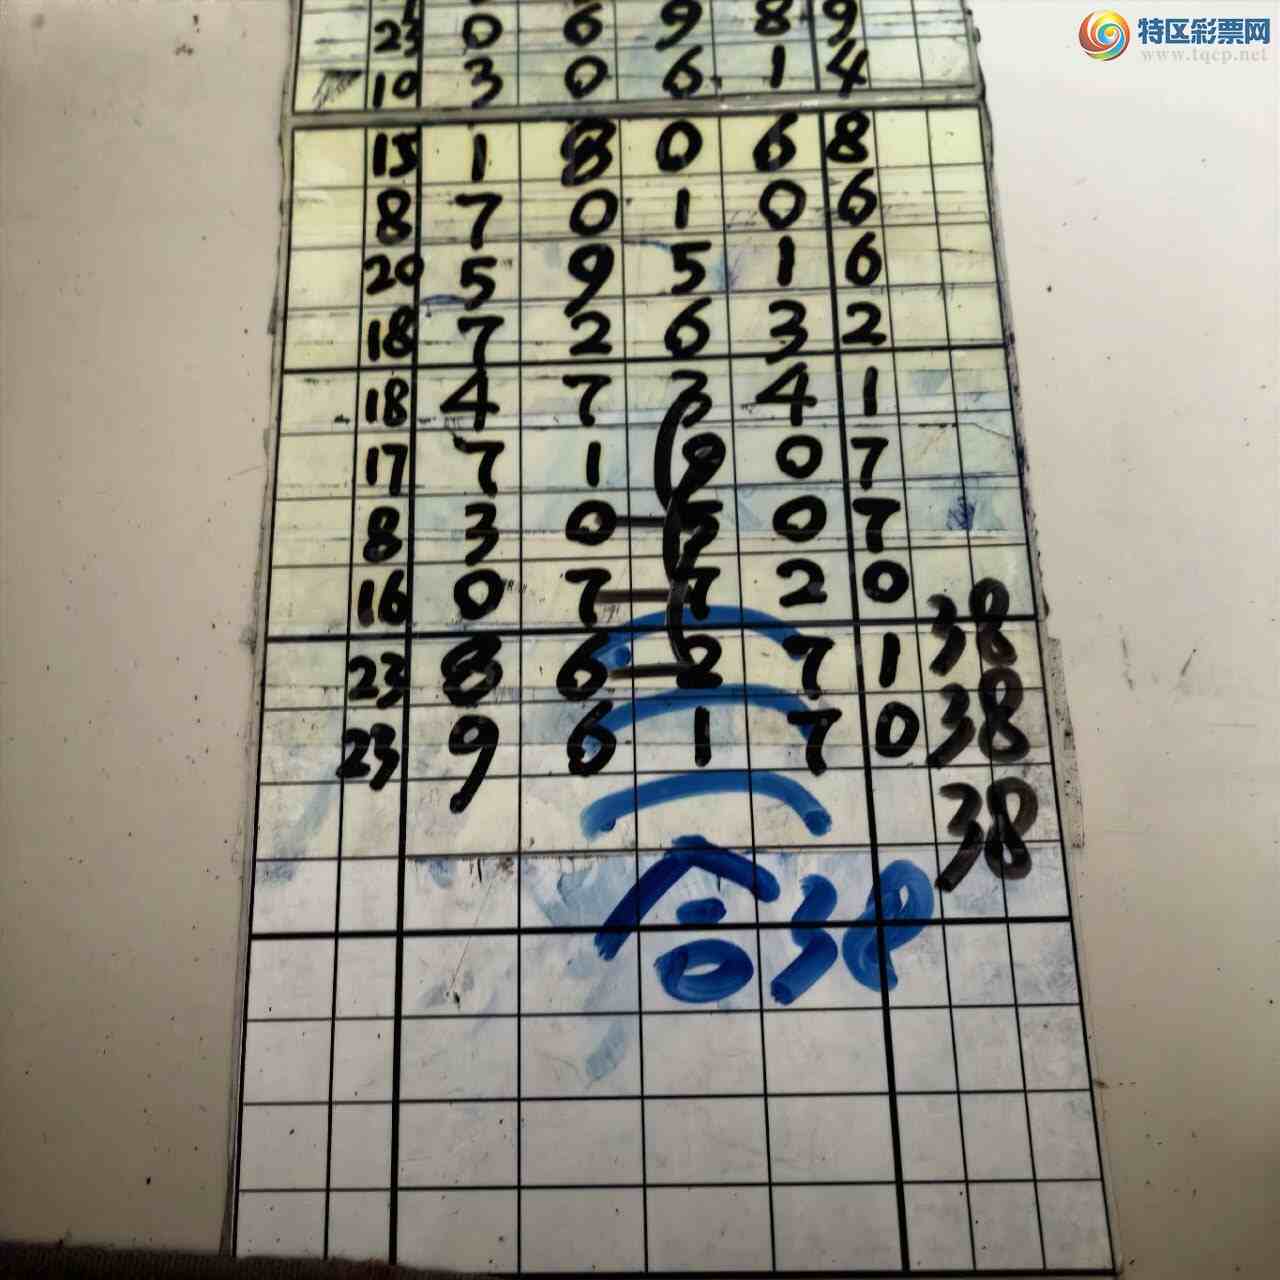 特区彩票网
www.tqcp.net
23 0 6 9 8 9
10 3 0 6 1 4
15 1 8 0 6 8
8 7 0 1 0 6
20 5 9 5 1 6
18 7 2 6 3 2
18 4 7 3 4 1
17 7 1 9 0 7
8 3 0 5 0 7
16 0 7 7 2 0
23 8 6 2 7 1 38
23 9 6 1 7 0 38
38
合38